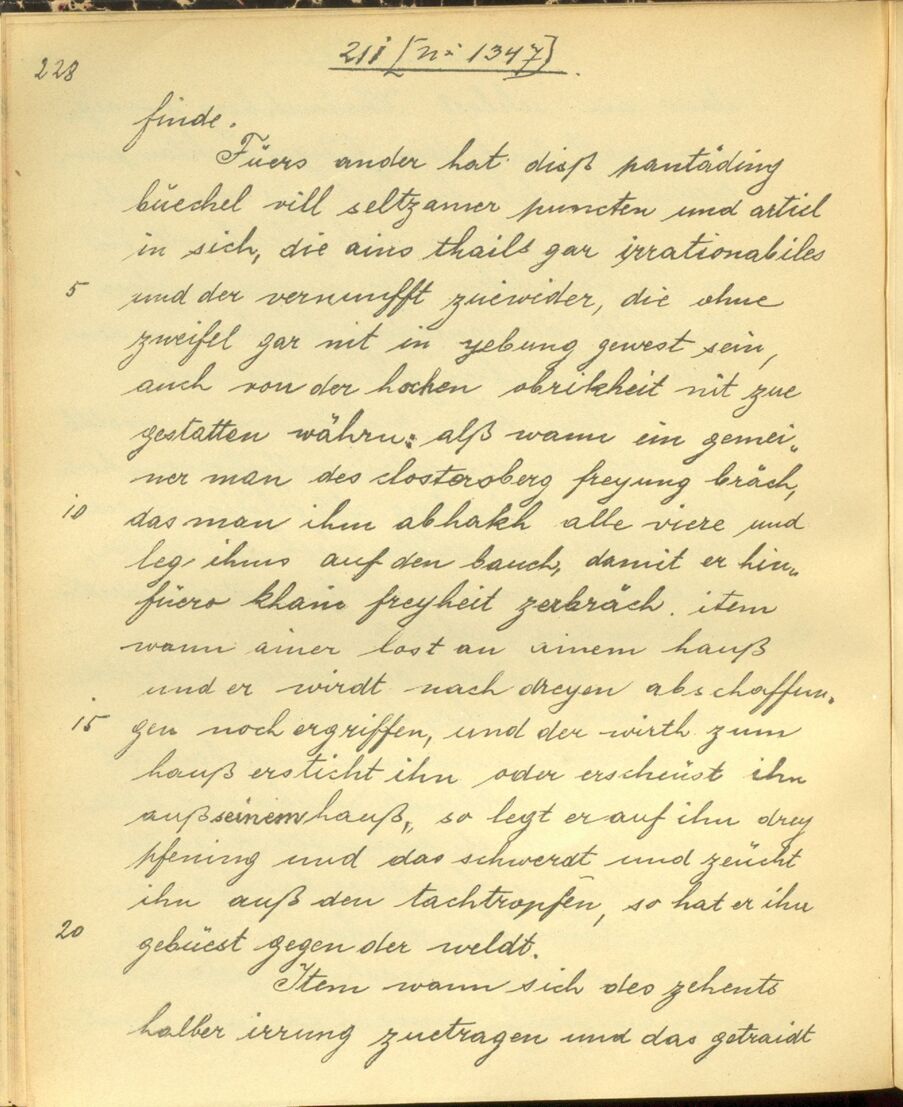 228
211 [N: 1347]
finde.
Füers ander hat dieß pantäding
büechel vill seltzamer puncten und articl
in sich, die ains thails gar irrationabiles
5 und der vernunfft zuewider, die ohne
zweifel gar nit in yebung gewest sein,
auch von der hochen obrikheit nit zue
gestatten währn: alß wann ein gemei„
ner man des clostersberg freyung bräch,
10 das man ihm abhakh alle viere und
leg ihms auf den bauch, damit er hin„
füero khain freyheit zerbräch. item
wann ainer lost an ainem hauß
und er wirdt nach dreyen abschaffun„
15 gen noch ergriffen, und der wirth zum
hauß ersticht ihn oder erscheüst ihn
auß seinem hauß, so legt er auf ihn drey
pfening und das schwerdt und zeücht
ihn auß den tachtropfen, so hat er ihn
20 gebüest gegen der weldt.
Item wann sich des zehents
halber irrung zuetragen und das getraidt